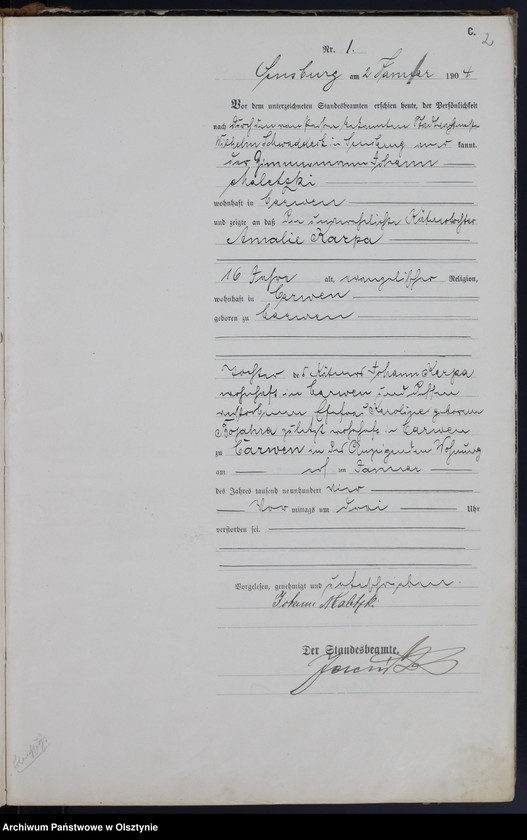 C.
2
Nr. 1.
Sensburg am 2 Januar 1904
Vor dem unterzeichneten Standesbeamten erschien heute, der Persönlichkeit
nach durch den
Wilhelm in Sensburg kannt,
der Zimmermann Johann
Maletzki
wohnhaft in Carwen
und zeigte an daß die unverehelichte Kätnertochter
Amalie Karpa
16 Jahre alt, evangelischer Religion,
wohnhaft in Carwen
geboren zu Carwen
Tochter des Kätners Johann Karpa
wohnhaft in Carwen und dessen
verstorbenen Ehefrau Karoline geborenen
zuletzt wohnhaft in Carwen
zu Carwen in der Wohnung
am ten Januar
des Jahres tausend neunhundert vier
Vor mittags um drei Uhr
verstorben sei.
Vorgelesen, genehmigt und unterschrieben.
Johann
Der Standesbeamte.
Archiwum Państwowe w Olsztynie